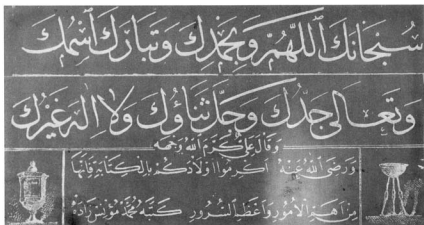 سُبْحَانَكَ اللّٰهُمَّ وَبِحَمْدِكَ وَتَبَارَكَ اسْمُكَ
وَتَعَالَى جَدُّكَ وَجَلَّ ثَنَاؤُكَ وَلَا اِلٰهَ غَيْرُكَ
وَقَالَ عَلِيٌّ كَرَّمَ اللهُ وَجْهَهُ
وَرَضِيَ اللهُ عَنْهُ اَكْرِمُوا اَوْلَادَكُمْ بِالْكِتَابَةِ فَاِنَّهَا
مِنْ اَهَمِّ الْاُمُورِ وَاَعْظَمِ السُّرُورِ كَتَبَهُ مُحَمَّد مُؤْنِس زَادَه